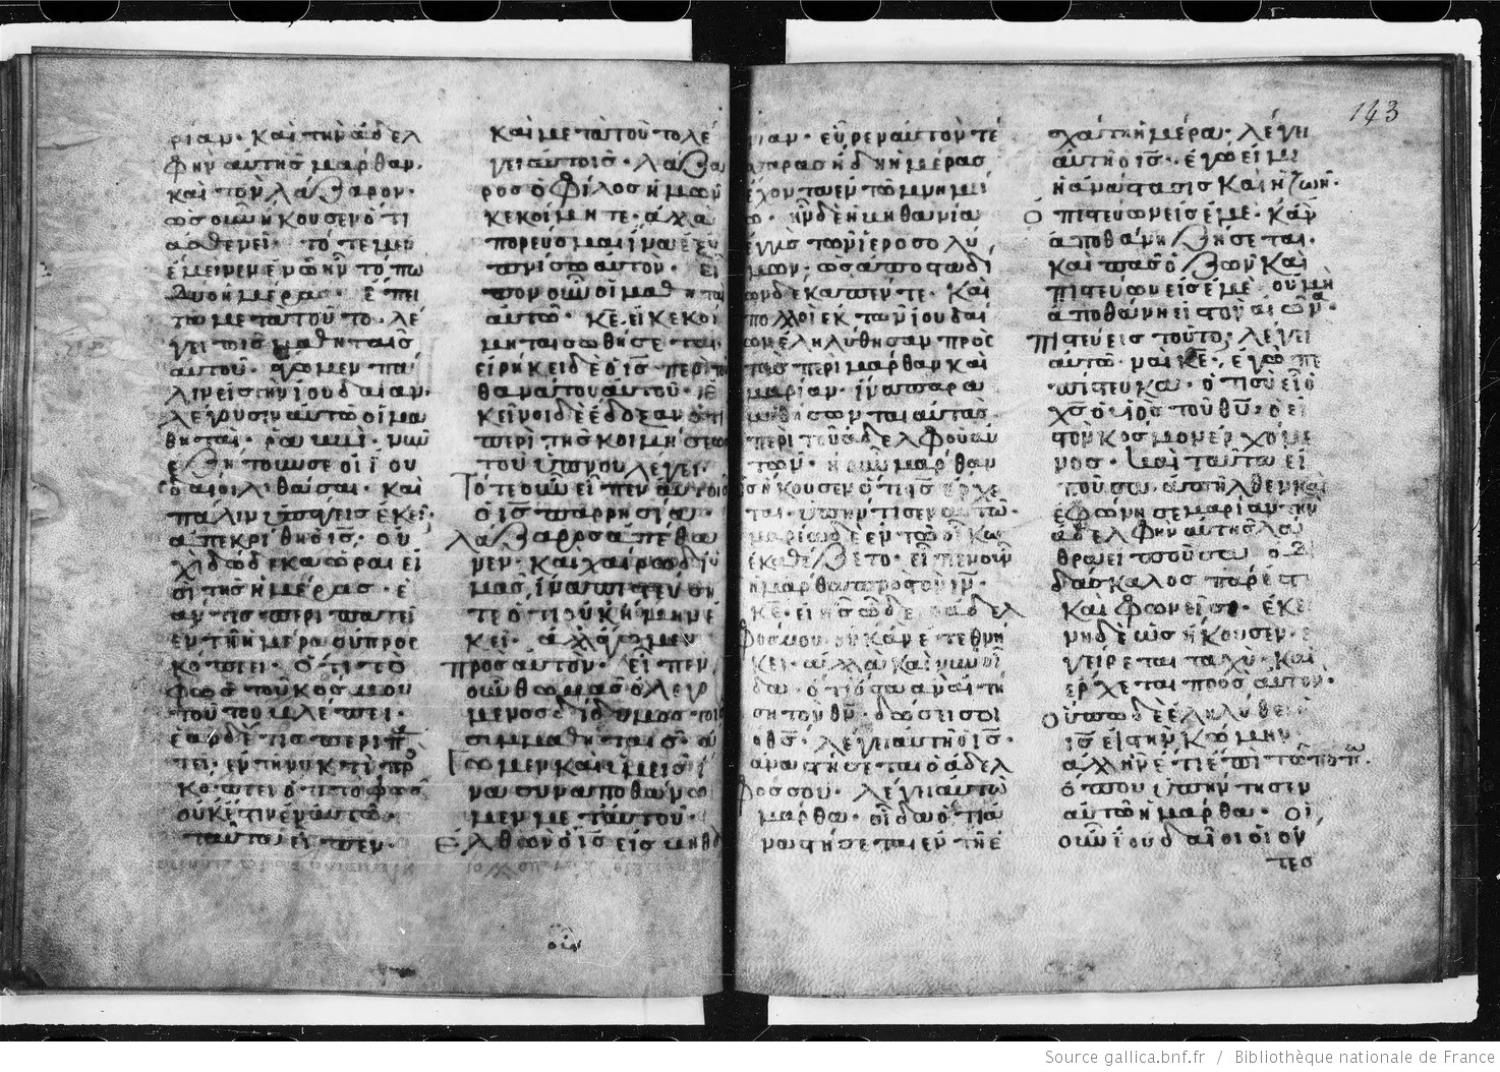 ρίαν· καὶ τὴν ἀδελ
φὴν αὐτῆς μάρθαν·
καὶ τὸν λάζαρον·
ὡς οὖν ἤκουσεν ὅτι
ἀσθενεῖ· τότε μὲν
ἔμεινεν ἐν ᾧ ἦν τόπω
δύο ἡμέρας· ἔπει
τα μετὰ τοῦτο· λέ
γει τοῖς μαθηταῖς
αὐτοῦ· ἄγωμεν πά
λιν εἰς τὴν ἰουδαίαν·
λέγουσιν αὐτῶ οἱ μα
θηταί· ῥαββί· νῦν
ἐζήτουν σε οἱ ἰου
δαῖοι λιθάσαι· καὶ
πάλιν ὑπάγεις ἐκεῖ·
ἀπεκρίθη ὁ ις· οὐ
χὶ δώδεκα ὧραι εἰ
σὶ τῆς ἡμέρας· ἐ
άν τις περιπατεῖ
ἐν τῆ ἡμέρα οὐ προσ
κόπτει· ὅτι τὸ
φῶς τοῦ κόσμου
τούτου βλέπει·
ἐὰν δέ τις περιπα
τεῖ· ἐν τῆ νυκτὶ προ
κόπτει ὅτι τὸ φῶς
οὐκ ἔστιν ἐν αὐτῶ·
ταῦτα εἶπεν·
καὶ μετὰ τοῦτο λέ
γει αὐτοῖς· λάζα
ρος ὁ φίλος ἡμῶν
κεκοίμηται· ἀλλὰ
πορεύομαι ἵνα ἐξυ
πνίσω αὐτόν· εἶ
πον οὖν οἱ μαθηταὶ
αὐτῶ· κε εἰ κεκοί
μηται σωθήσεται·
εἰρήκει δὲ ὁ ις περὶ τοῦ
θανάτου αὐτοῦ· ἐ
κεῖνοι δὲ ἔδοξαν ὅτι
περὶ τῆς κοιμήσεως
τοῦ ὕπνου λέγει·
Τότε οὖν εἶπεν αὐτοῖς
ὁ ις παρρησία·
λάζαρος ἀπέθα
νεν· καὶ χαίρω δι' ὑ
μᾶς, ἵνα πιστεύση
τε ὅτι οὐκ ἤμην ἐ
κεῖ· ἀλλ' ἄγωμεν
πρὸς αὐτόν· εἶπεν
οὖν θωμᾶς ὁ λεγό
μενος δίδυμος τοῖς
συμμαθηταῖς· ἄ
γωμεν καὶ ἡμεῖς ἵ
να συναποθάνω
μεν μετ' αὐτοῦ·
Ἐλθὼν ὁ ις εἰς βηθα
νίαν· εὗρεν αὐτὸν τέ
σσαρας ἤδη ἡμέρας
ἔχοντα ἐν τῶ μνημεί
ω· ἦν δὲ ἡ βηθανία
ἐγγὺς τῶν ἱεροσολύ
μων· ὡς ἀπὸ σταδί
ων δεκαπέντε· Καὶ
πολλοὶ ἐκ τῶν ἰουδαί
ων ἐληλύθησαν πρὸς
τὰς περὶ μάρθαν καὶ
μαρίαν· ἵνα παρα
μυθήσωνται αὐτὰς·
περὶ τοῦ ἀδελφοῦ αὐ
τῶν· ἡ οὖν μάρθα
ὡς ἤκουσεν ὅτι ις ἔρχε
ται· ὑπήντησεν αὐτῶ·
μαρία δὲ ἐν τῶ οἴκω
ἐκαθέζετο· εἶπεν οὖν
ἡ μάρθα πρὸς τὸν ιν·
κε· εἰ ἦς ὧδε ὁ ἀδελ
φός μου οὐκ ἂν ἐτεθνή
κει· ἀλλὰ καὶ νῦν οἶ
δα· ὅτι ὅσα ἂν αἰτή
ση τὸν θν· δώσει σοι
ὁ θς· λέγει αὐτῆ ὁ ις·
ἀναστήσεται ὁ ἀδελ
φός σου· λέγει αὐτῶ
μάρθα· οἶδα ὅτι ἀ
ναστήσεται ἐν τῆ ἐ
σχάτη ἡμέρα· λέγει
αὐτῆ ὁ ις· ἐγώ εἰμι
ἡ ἀνάστασις καὶ ἡ ζωή·
ὁ πιστεύων εἰς ἐμὲ· κἂν
ἀποθάνη ζήσεται·
καὶ πᾶς ὁ ζῶν καὶ
πιστεύων εἰς ἐμὲ οὐ μὴ
ἀποθάνη εἰς τὸν αἰῶνα·
πιστεύεις τοῦτο; λέγει
αὐτῶ· ναὶ κε· ἐγὼ πε
πίστευκα· ὅτι σὺ εἶ ὁ
χς ὁ υἱὸς τοῦ θυ· ὁ εἰς
τὸν κόσμον ἐρχόμε
νος· καὶ ταῦτα εἰ
ποῦσα ἀπῆλθεν καὶ
ἐφώνησε μαρίαν τὴν
ἀδελφὴν αὐτῆς λά
θρα εἰποῦσα ὁ δι
δάσκαλος πάρεστι
καὶ φωνεῖ σε· ἐκεί
νη δὲ ὡς ἤκουσεν· ἐ
γείρεται ταχὺ· καὶ
ἔρχεται πρὸς αὐτόν·
οὔπω δὲ ἐληλύθει
ις εἰς τὴν κώμην
ἀλλ' ἦν ἔτι ἐπὶ τῶ τόπω
ὅπου ὑπήντησεν
αὐτῶ ἡ μάρθα· οἱ
οὖν ἰουδαῖοι οἱ ὄν
τες
143
Source gallica.bnf.fr / Bibliothèque nationale de France